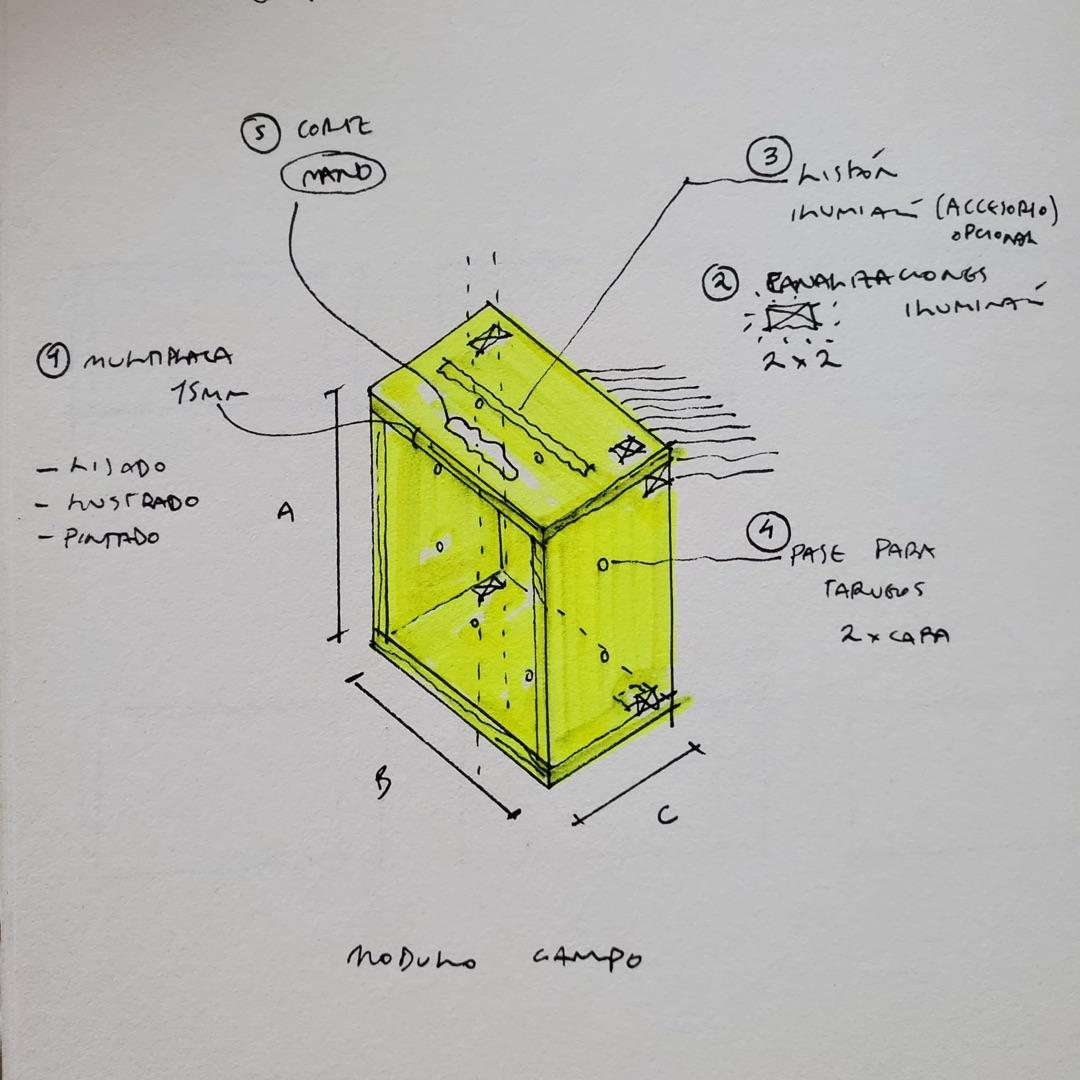 5 CORTE
MANO
3 LISTÓN
ILUMINAC (ACCESORIO)
OPCIONAL
2 CANALIZACIONES
ILUMINAC
2x2
1 MULTIPLACA
15MM
- LIJADO
- LUSTRADO
- PINTADO
A
4 PASE PARA
TARUGOS
2 x CARA
B
C
MODULO CAMPO